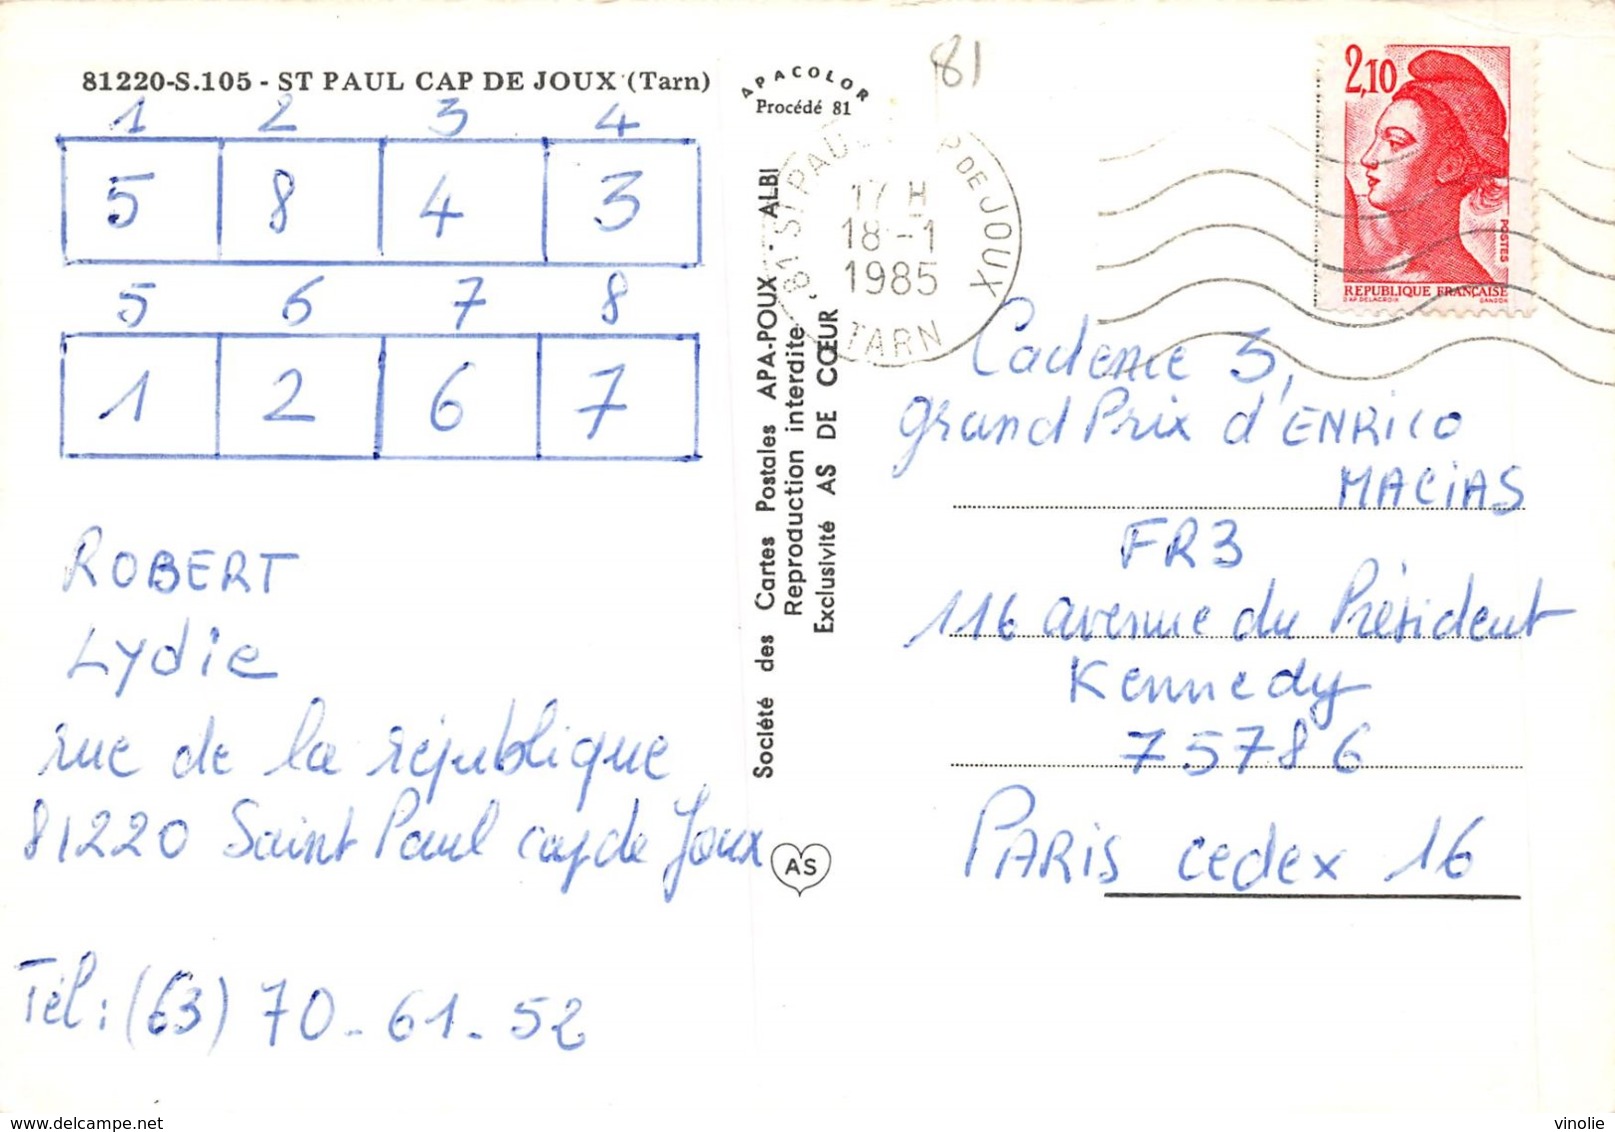 81220-S.105 - ST PAUL CAP DE JOUX (Tarn)
1 2 3 4
5 8 4 3
5 6 7 8
1 2 6 7
ROBERT
Lydie
rue de la république
81220 Saint Paul cap de Joux
Tél : (63) 70 - 61 - 52
APACOLOR
Procédé 81
Société des Cartes Postales APA-POUX - ALBI
Reproduction interdite
Exclusivité AS DE CŒUR
AS
81
81 ST PAUL CAP DE JOUX
17 H
18 -1
1985
TARN
2,10
POSTES
REPUBLIQUE FRANÇAISE
D'AP. DELACROIX GANDON
Cadence 3,
grand Prix d'ENRICO
MACIAS
FR3
116 avenue du Président
Kennedy
75786
PARIS cedex 16
delcampe.net
vinolie